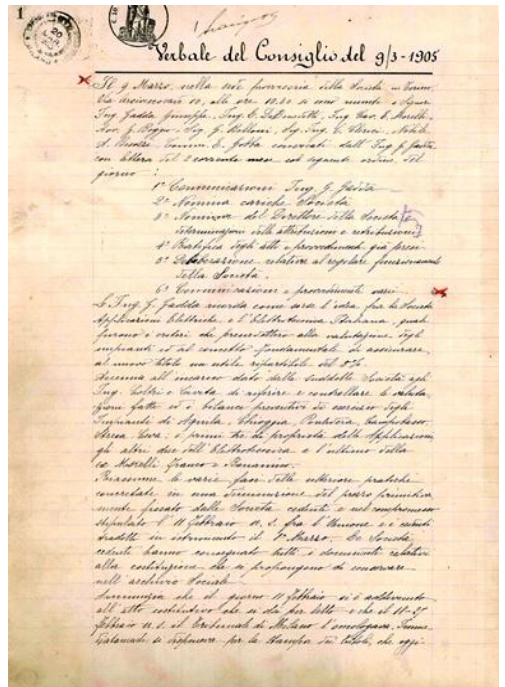 1
Verbale del Consiglio del 9/3-1905
Il 9 Marzo, nella sede provvisoria della Società in Torino
Via Arcivescovado, alle ore 10.30 si sono riuniti i Signori
Ing. Gadda Giuseppe, Ing. E. De Benedetti, Ing. Cav. E. Morelli,
Avv. G. Poggio, Sig. G. Belloni, Sig. Ing. C. Clerici, Nobile
Comm. E. Gotta convocati dall'Ing. G. Gadda
con lettera del 2 corrente mese col seguente ordine del
giorno:
1° Comunicazioni Ing. G. Gadda
2° Nomina cariche Società
3° Nomina del Direttore della Società e
determinazioni delle attribuzioni e retribuzioni
4° Ratifica degli atti e provvedimenti già presi
5° Deliberazione relative al regolare funzionamento
della Società.
6° Comunicazioni e provvedimenti varii
L'Ing. G. Gadda ricorda come sorse l'idea fra le Società
Applicazioni Elettriche e l'Elettrotecnica Italiana, quali
furono i criteri che presiedettero alla valutazione degli
impianti ed al concetto fondamentale di assicurare
al nuovo titolo un utile ripartibile del 5%.
Accenna all'incarico dato dalle suddette Società agli
Ing. Goltri e Cavita di riferire e controllare le valuta-
zioni fatte ed i bilanci preventivi di esercizio degli
Impianti di Aquila, Chioggia, Pontedera, Campobasso,
i primi tre di proprietà delle Applicazioni
gli altri due dell'Elettrotecnica e l'ultimo della
ex Morelli Franco e Bonamico.
Riassume le varie fasi delle ulteriori pratiche
concretate in una diminuzione del prezzo primitiva-
mente fissato dalle Società cedenti e nel compromesso
stipulato l'11 febbraio u. s. fra l'Unione e i cedenti
tradotto in istrumento il 1° Marzo. Le Società
cedenti hanno consegnato tutti i documenti relativi
alla costituzione che si propongono di conservare
nell'archivio Sociale.
Annunzia che il giorno 11 febbraio si è addivenuto
all'atto costitutivo che si dà per letto e che il 18-27
febbraio u. s. il Tribunale di Milano l'omologava.
di disposizioni per la stampa dei titoli, che oggi